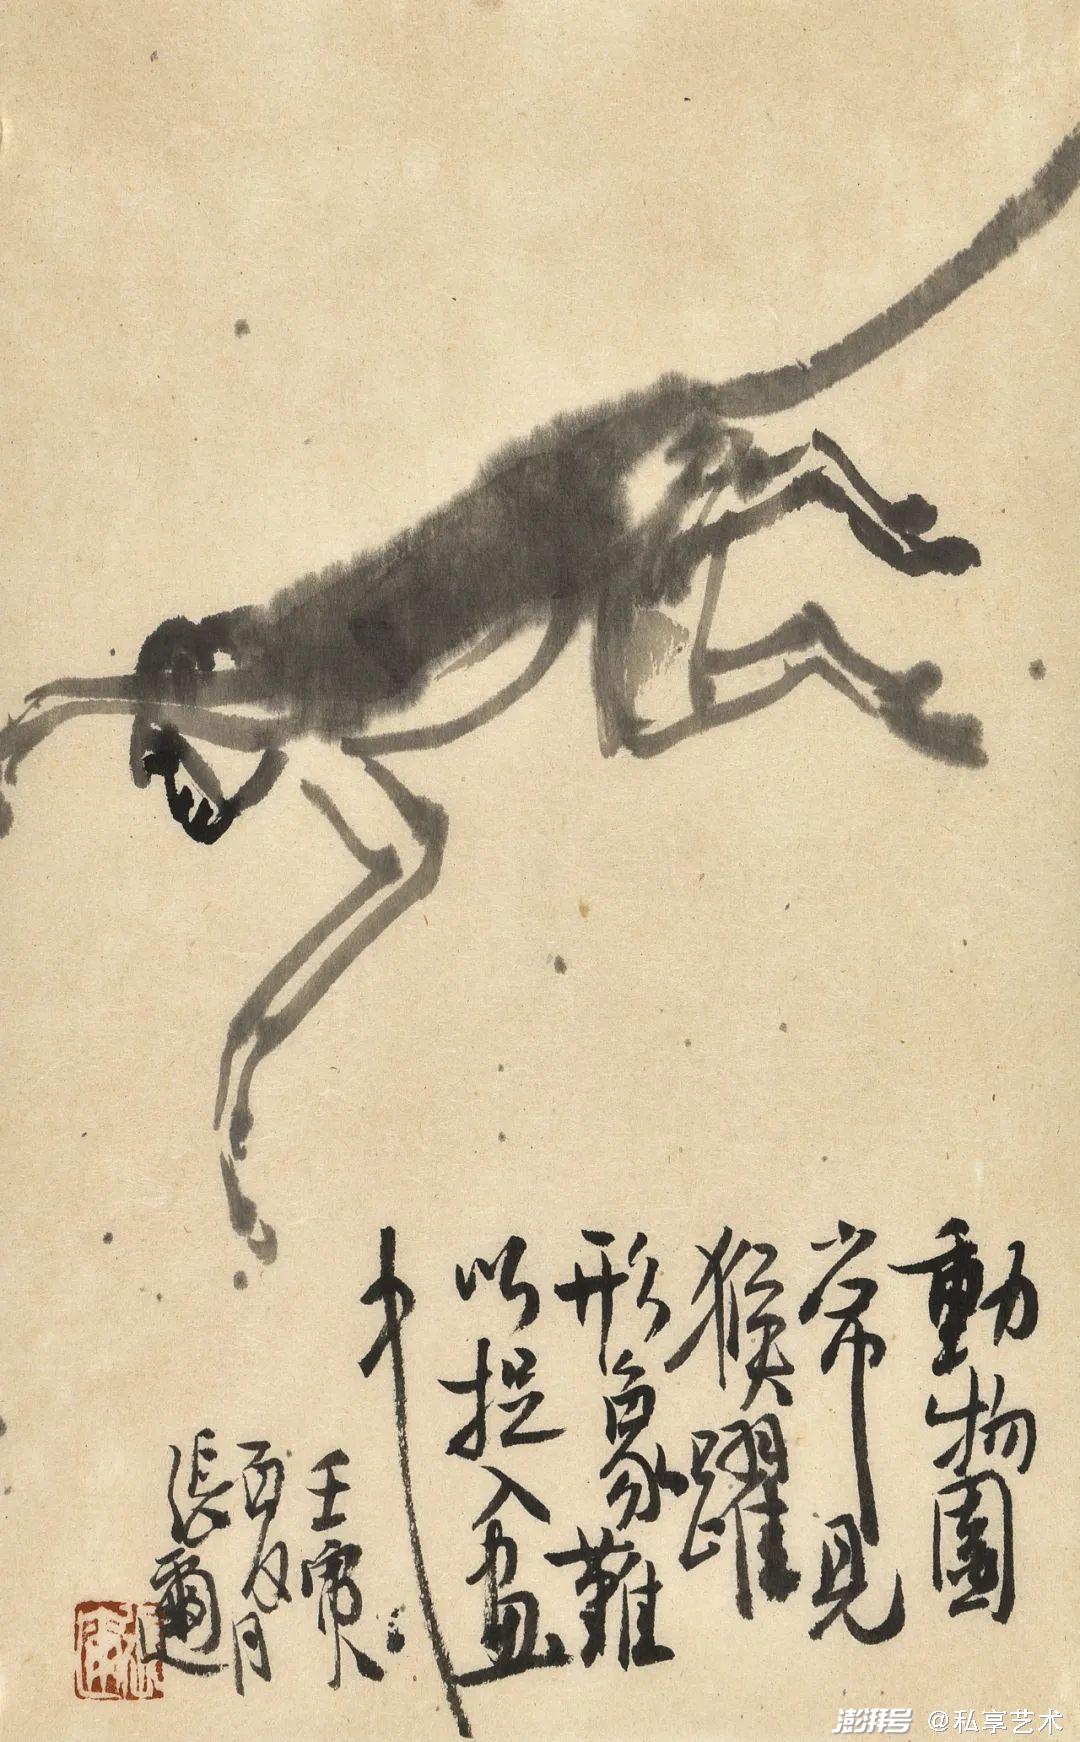 動物園
常見
猴躍
形象難
以捉入画
中
壬寅
夏月
張爾
澎湃号 @私享艺术